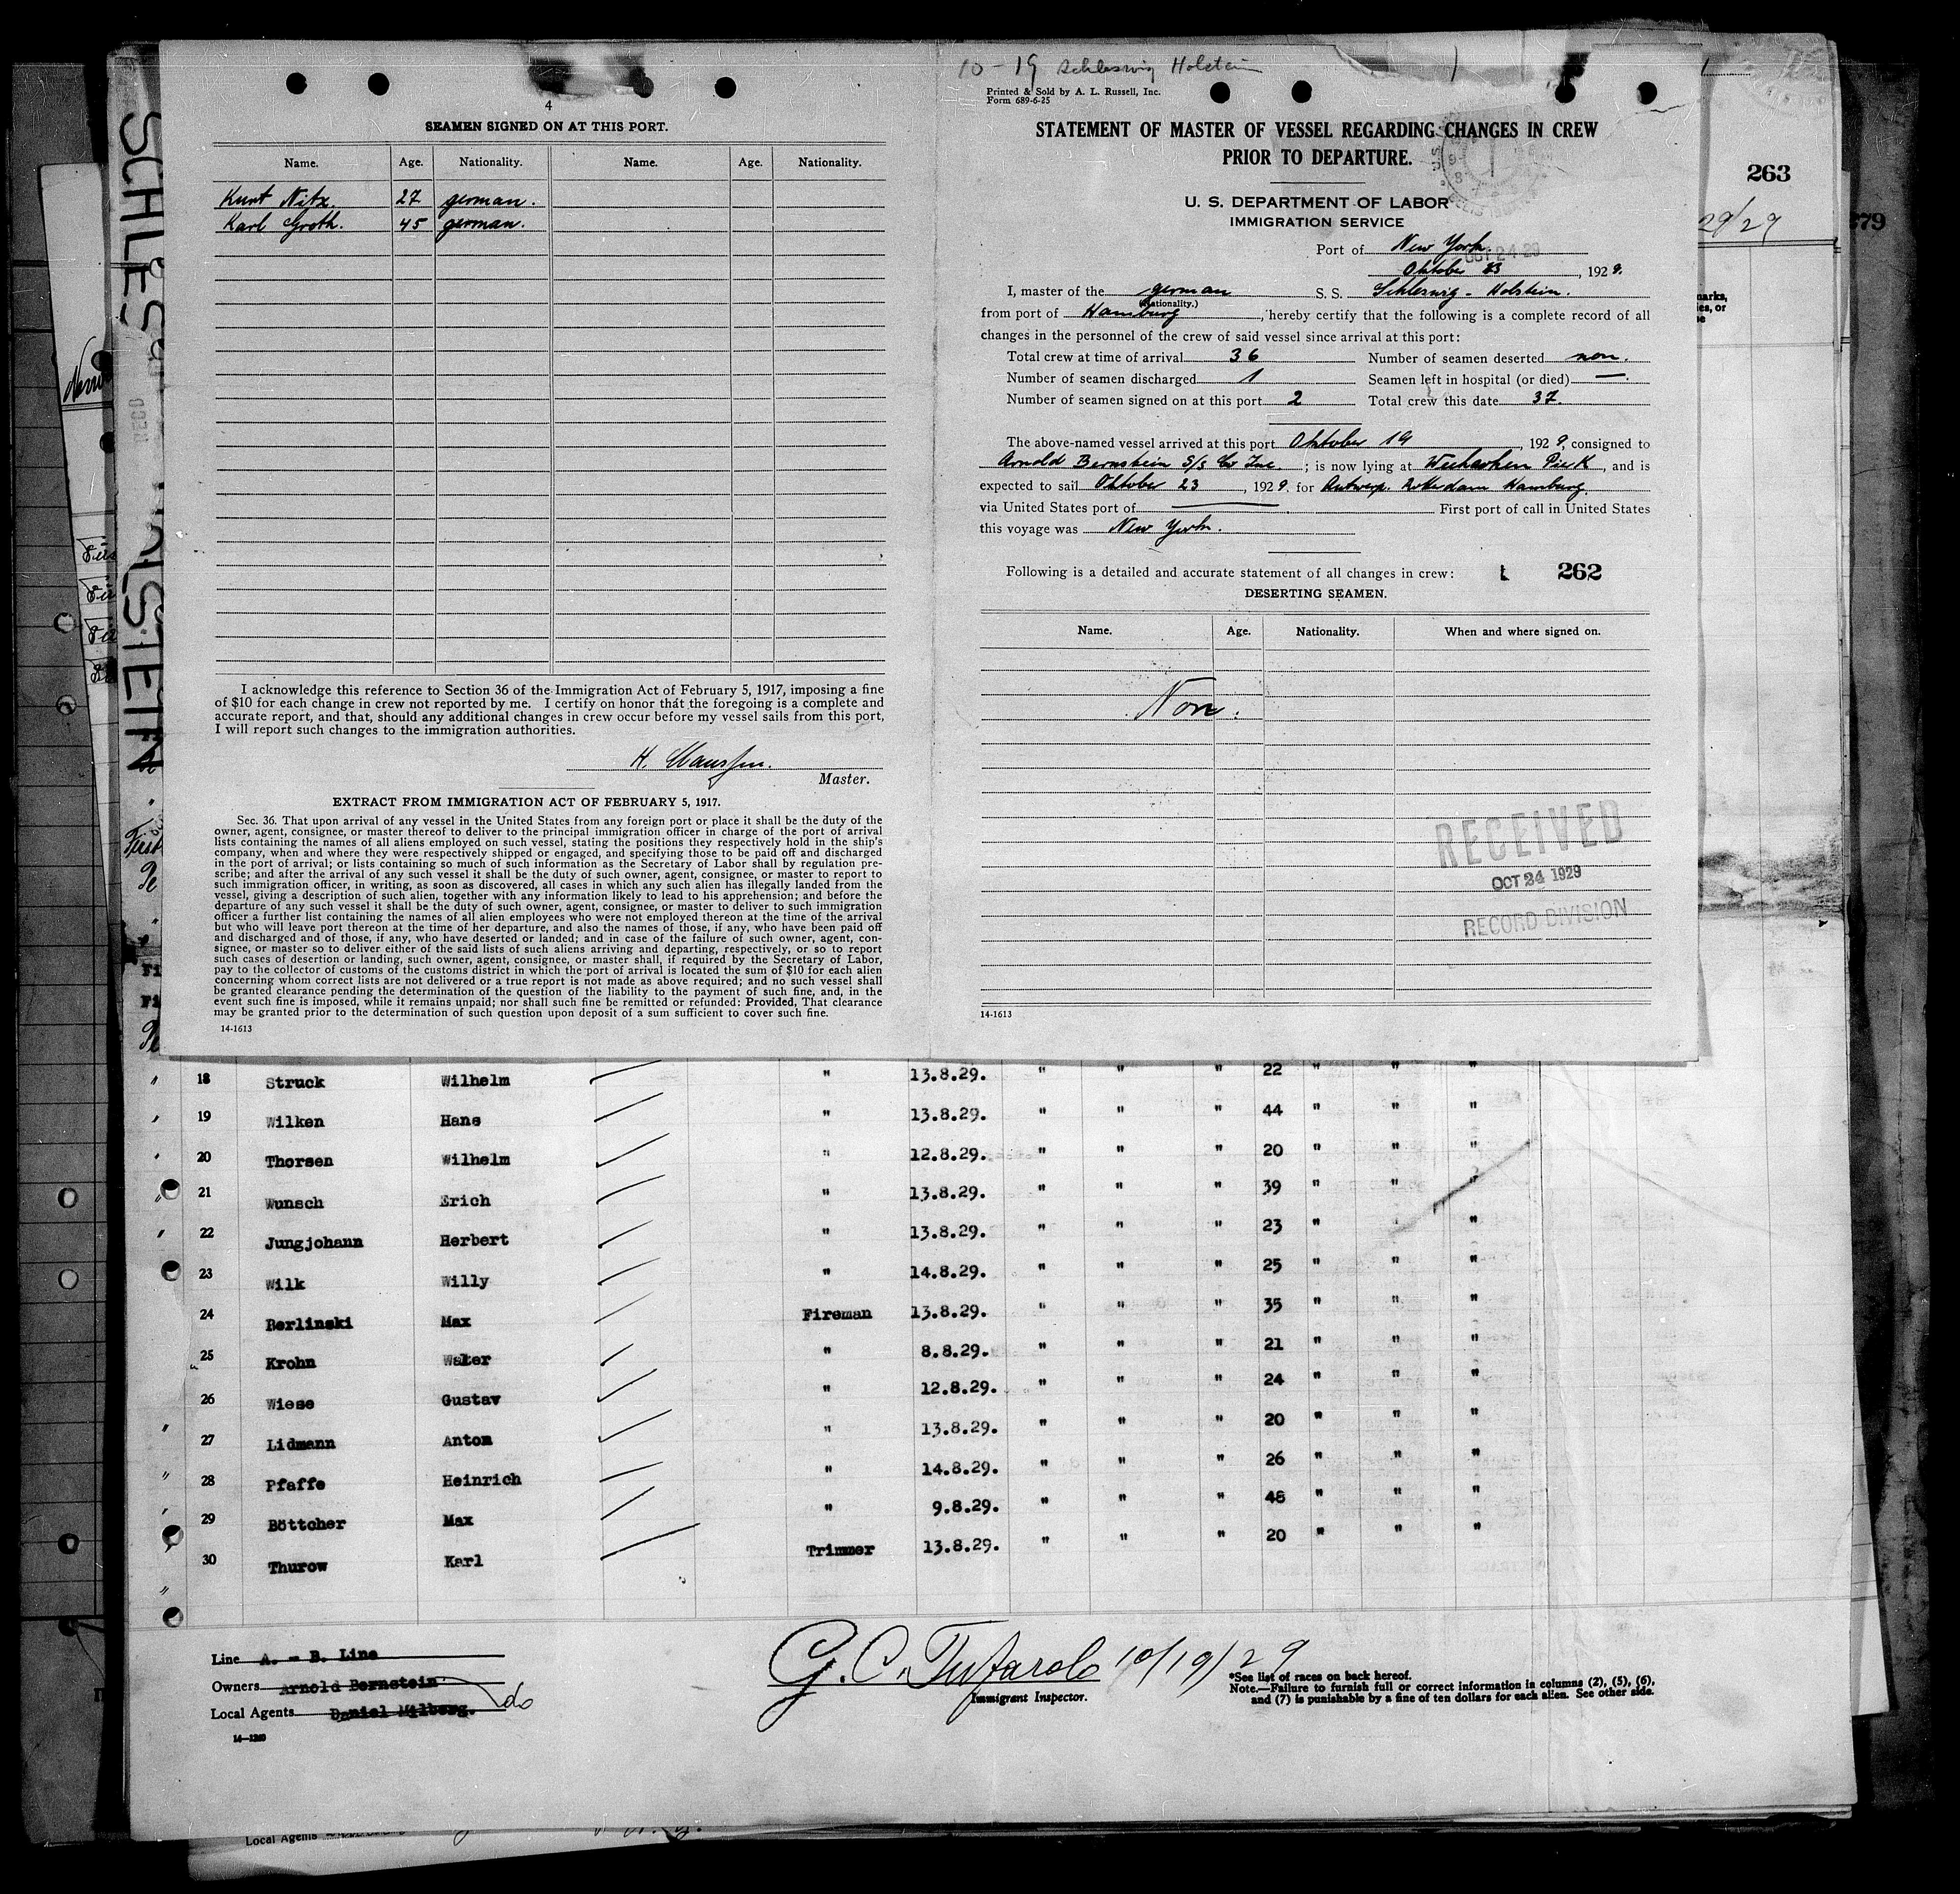 4
SEAMEN SIGNED ON AT THIS PORT.
Name. Age. Nationality. Name. Age. Nationality.
Kurt Nitz. 27 german.
Karl Groth. 45 german.
I acknowledge this reference to Section 36 of the Immigration Act of February 5, 1917, imposing a fine
of $10 for each change in crew not reported by me. I certify on honor that the foregoing is a complete and
accurate report, and that, should any additional changes in crew occur before my vessel sails from this port,
I will report such changes to the immigration authorities.
H. Claussen.
Master.
EXTRACT FROM IMMIGRATION ACT OF FEBRUARY 5, 1917.
Sec. 36. That upon arrival of any vessel in the United States from any foreign port or place it shall be the duty of the
owner, agent, consignee, or master thereof to deliver to the principal immigration officer in charge of the port of arrival
lists containing the names of all aliens employed on such vessel, stating the positions they respectively hold in the ship's
company, when and where they were respectively shipped or engaged, and specifying those to be paid off and discharged
in the port of arrival; or lists containing so much of such information as the Secretary of Labor shall by regulation pre-
scribe; and after the arrival of any such vessel it shall be the duty of such owner, agent, consignee, or master to report to
such immigration officer, in writing, as soon as discovered, all cases in which any such alien has illegally landed from the
vessel, giving a description of such alien, together with any information likely to lead to his apprehension; and before the
departure of any such vessel it shall be the duty of such owner, agent, consignee, or master to deliver to such immigration
officer a further list containing the names of all alien employees who were not employed thereon at the time of the arrival
but who will leave port thereon at the time of her departure, and also the names of those, if any, who have been paid off
and discharged and of those, if any, who have deserted or landed; and in case of the failure of such owner, agent, con-
signee, or master so to deliver either of the said lists of such aliens arriving and departing, respectively, or so to report
such cases of desertion or landing, such owner, agent, consignee, or master shall, if required by the Secretary of Labor,
pay to the collector of customs of the customs district in which the port of arrival is located the sum of $10 for each alien
concerning whom correct lists are not delivered or a true report is not made as above required; and no such vessel shall
be granted clearance pending the determination of the question of the liability to the payment of such fine, and, in the
event such fine is imposed, while it remains unpaid; nor shall such fine be remitted or refunded: Provided, That clearance
may be granted prior to the determination of such question upon deposit of a sum sufficient to cover such fine.
14-1613
10-19 Schleswig Holstein
Printed & Sold by A. L. Russell, Inc.
Form 689-6-25
STATEMENT OF MASTER OF VESSEL REGARDING CHANGES IN CREW
PRIOR TO DEPARTURE.
U. S. DEPARTMENT OF LABOR
IMMIGRATION SERVICE
Port of New York
OCT 24 29
Oktober 23, 1929.
I, master of the german S. S. Schleswig-Holstein.
(Nationality.)
from port of Hamburg, hereby certify that the following is a complete record of all
changes in the personnel of the crew of said vessel since arrival at this port:
Total crew at time of arrival 36 Number of seamen deserted non.
Number of seamen discharged 1 Seamen left in hospital (or died) —.
Number of seamen signed on at this port 2 Total crew this date 37.
The above-named vessel arrived at this port Oktober 19, 1929, consigned to
Arnold Bernstein S/S Co Inc.; is now lying at Weehawken Pier K, and is
expected to sail Oktober 23, 1929, for Antwerp. Rotterdam Hamburg.
via United States port of — First port of call in United States
this voyage was New York.
Following is a detailed and accurate statement of all changes in crew: 262
DESERTING SEAMEN.
Name. Age. Nationality. When and where signed on.
Non.
RECEIVED
OCT 24 1929
RECORD DIVISION
14-1613
263
29/29
279
SCHLESWIG HOLSTEIN
18 Struck Wilhelm " 13.8.29. " " " 22 " " "
19 Wilken Hans " 13.8.29. " " " 44 " " "
20 Thorsen Wilhelm " 12.8.29. " " " 20 " " "
21 Wunsch Erich " 13.8.29. " " " 39 " " "
22 Jungjohann Herbert " 13.8.29. " " " 23 " " "
23 Wilk Willy " 14.8.29. " " " 25 " " "
24 Berlinski Max Fireman 13.8.29. " " " 35 " " "
25 Krohn Walter " 8.8.29. " " " 21 " " "
26 Wiese Gustav " 12.8.29. " " " 24 " " "
27 Lidmann Anton " 13.8.29. " " " 20 " " "
28 Pfaffe Heinrich " 14.8.29. " " " 26 " " "
29 Böttcher Max " 9.8.29. " " " 48 " " "
30 Thurow Karl Trimmer 13.8.29. " " " 20 " " "
Line A. - B. Line
Owners Arnold Bernstein
Local Agents Daniel Milberg. do
14-1240
G. C. Tufarolo 10/19/29
Immigrant Inspector.
*See list of races on back hereof.
Note.—Failure to furnish full or correct information in columns (2), (5), (6),
and (7) is punishable by a fine of ten dollars for each alien. See other side.
Local Agents